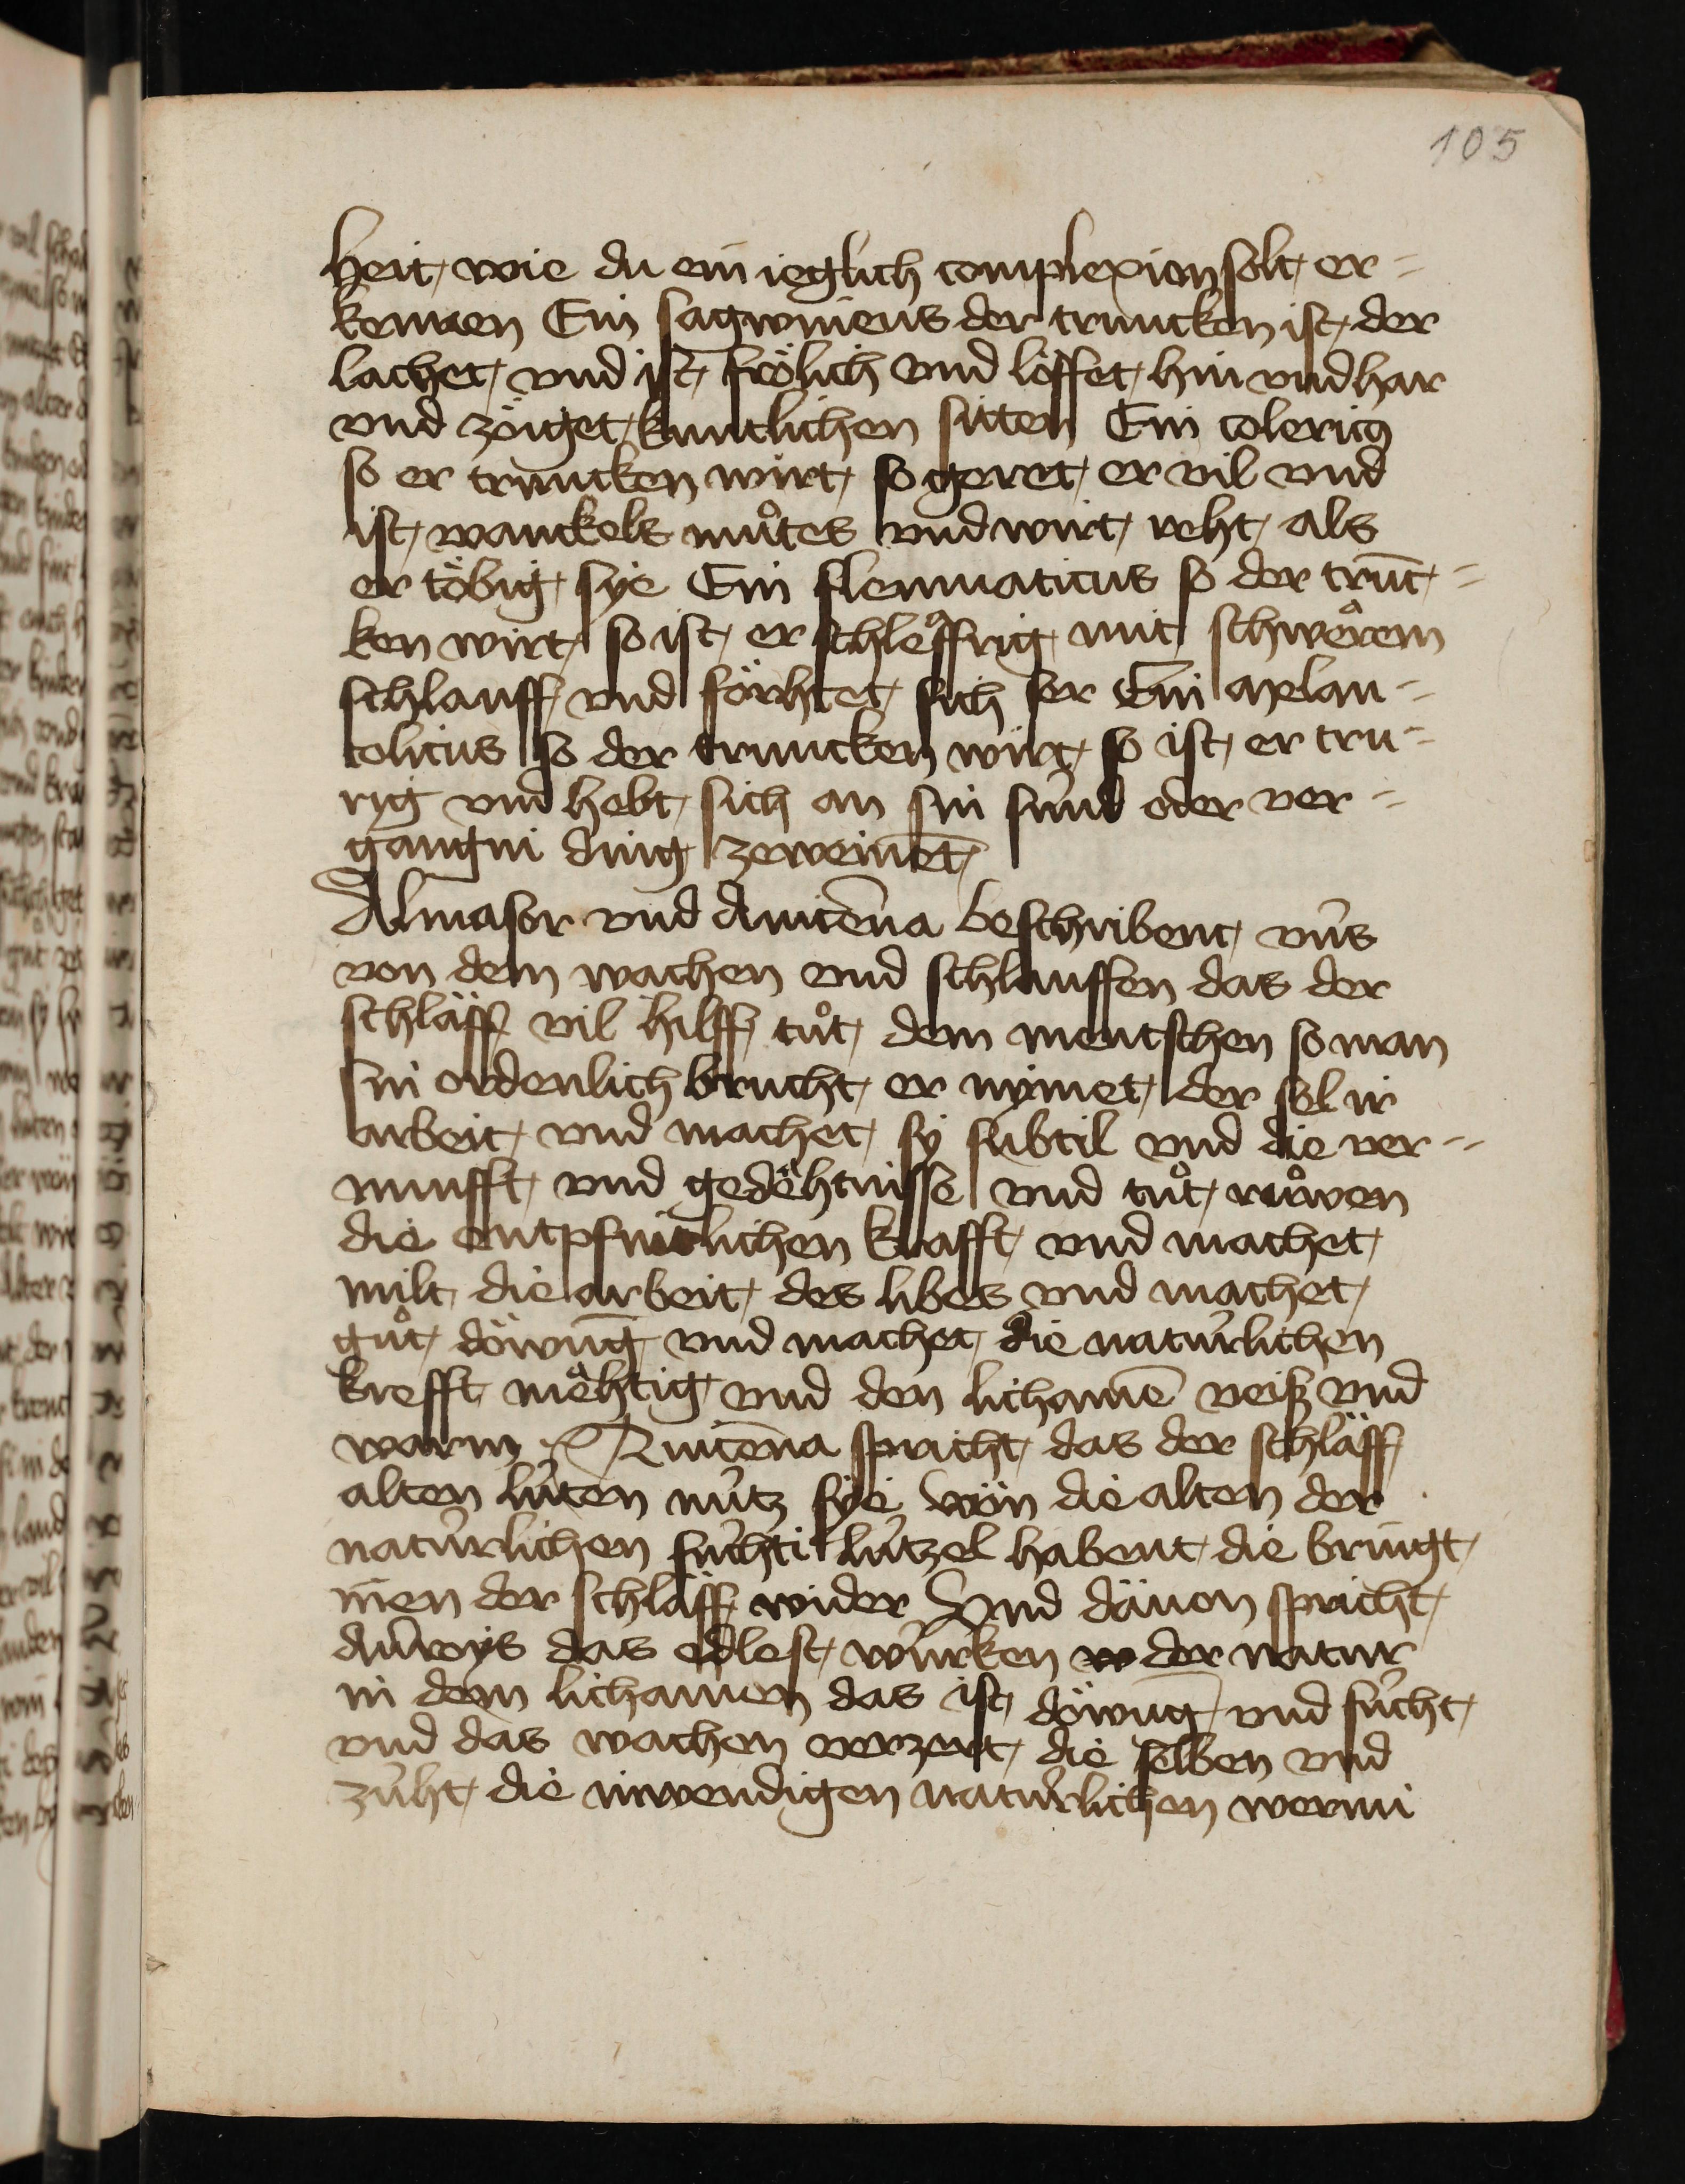 105
heit wie du ein ieglich complexion solt er=
kennen Ein sagwineus der truncken ist der
lachet vnd ist frölich vnd löffet hin vnd har
vnd zöiget kuntlichen sitten Ein colericq
so er truncken wirt so geret er vil vnd
ist wanckels muͦtes vnd wirt reht als
er töbig sye Ein flenmaticus so der trunc=
ken wirt so ist er schleͣffrig mit schweͣrem
schlauff vnd förhtet sich ser Ein melan=
colicus so der truncken wirt so ist er tru=
rig vnd hebt sich an sin sünd oder ver=
gangni ding zeweinet
Almasor vnd Auicēna beschribent vns
von dem wachen vnd schlauffen das der
schläff vil hilff tuͦt dem mentschen so man
sin ordenlich brucht er nymet der sel ir
arbeit vnd machet sy subtil vnd die ver=
nunfft vnd gedeͣhtnisse vnd tuͦt ruͦwen
die entpfintlichen krafft vnd machet
milt die arbeit des libes vnd machet
guͦt döwūg vnd machet die natürlichen
krefft meͣhtig vnd den lichamē veisz vnd
warm Auicēna spricht das der schläff
alten lüten nütz sye wān die alten der
natürlichen füchti lützel habent die bringt
inen der schläff wider Vnd dāuon spricht
das edlest würken der natur
in dem lichamen das ist döwūg vnd fücht
vnd das wachen verzert die selben vnd
züht die inwendigen natürlichen wermi